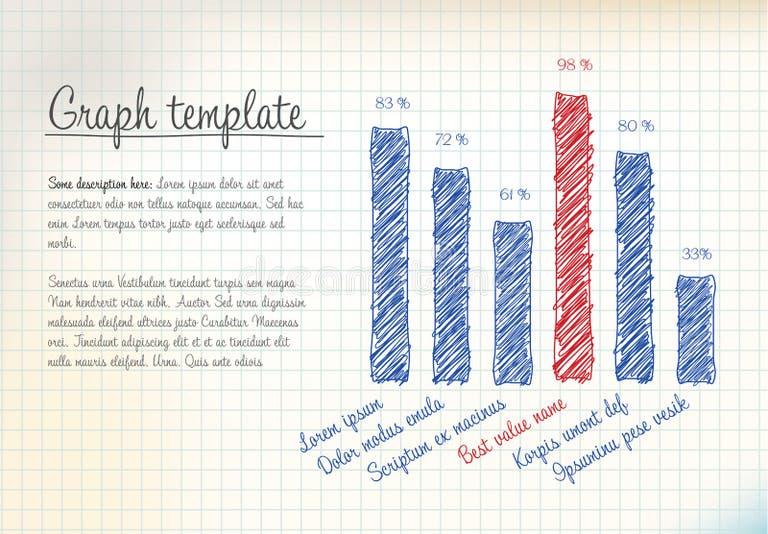 Graph template
Some description here: Lorem ipsum dolor sit amet,
consectetuer ut non tellus natoque accumsan. Sed
hac enim Lorem tempus tortor justo eget scelerisque sed
morbi.
Senectus urna Vestibulum tincidunt turpis sagittis id
Nam hendrerit vitae justo. Auctor ac Sed urna dignissim
malesuada eleifend ultrices Curabitur interdum quam
orci. Tincidunt adipiscing elit et eleifend ut
elit mauris eleifend tortor. Urna. Quam ante odiois
83 %
72 %
61 %
98 %
80 %
33%
Lorem ipsum
Dolor modus emula
Scriptum ex macinus
Best value name
Korpis umont def
Ipsuminu pese vesik
dreamstime